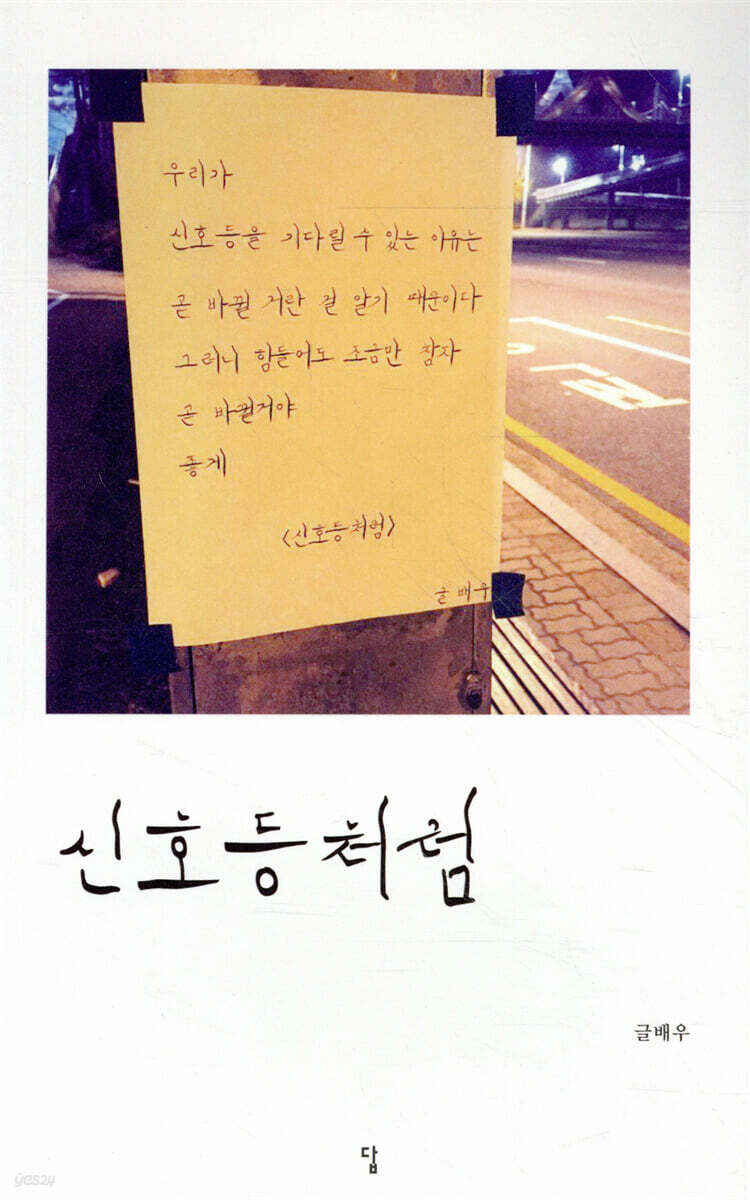 우리가
신호등을 기다릴 수 있는 이유는
곧 바뀔 거란 걸 알기 때문이다
그러니 힘들어도 조금만 참자
곧 바뀔거야
좋게
<신호등처럼>
글배우
신호등처럼
글배우
답
yes24